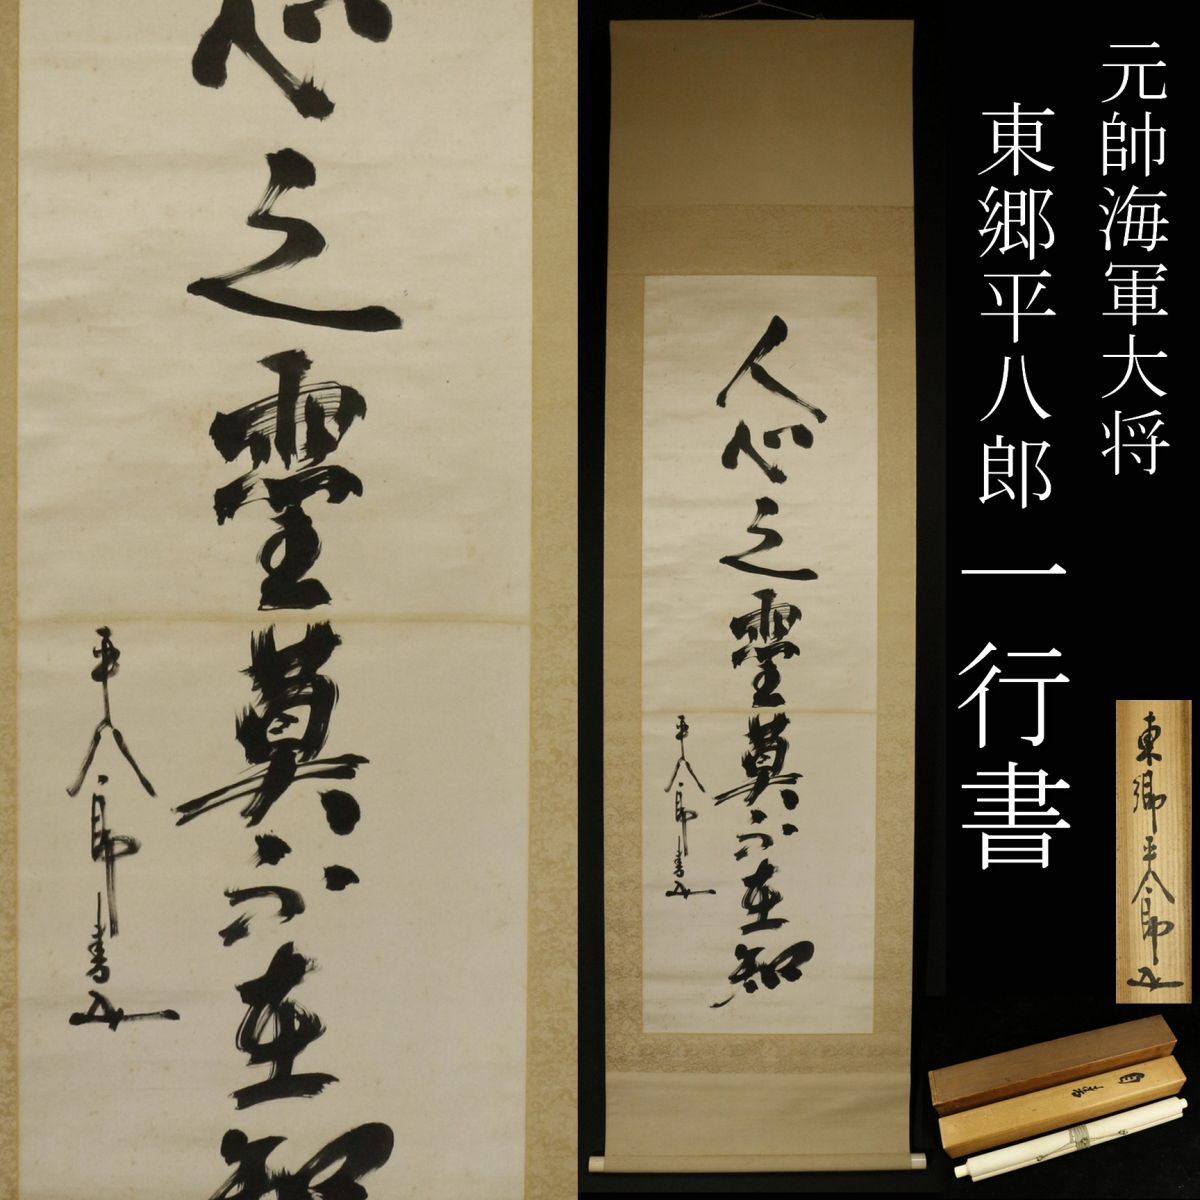 元帥海軍大将
東郷平八郎 一行書
人心之靈莫不在知
平八郎書
心之靈莫不在知
平八郎書
東郷平八郎